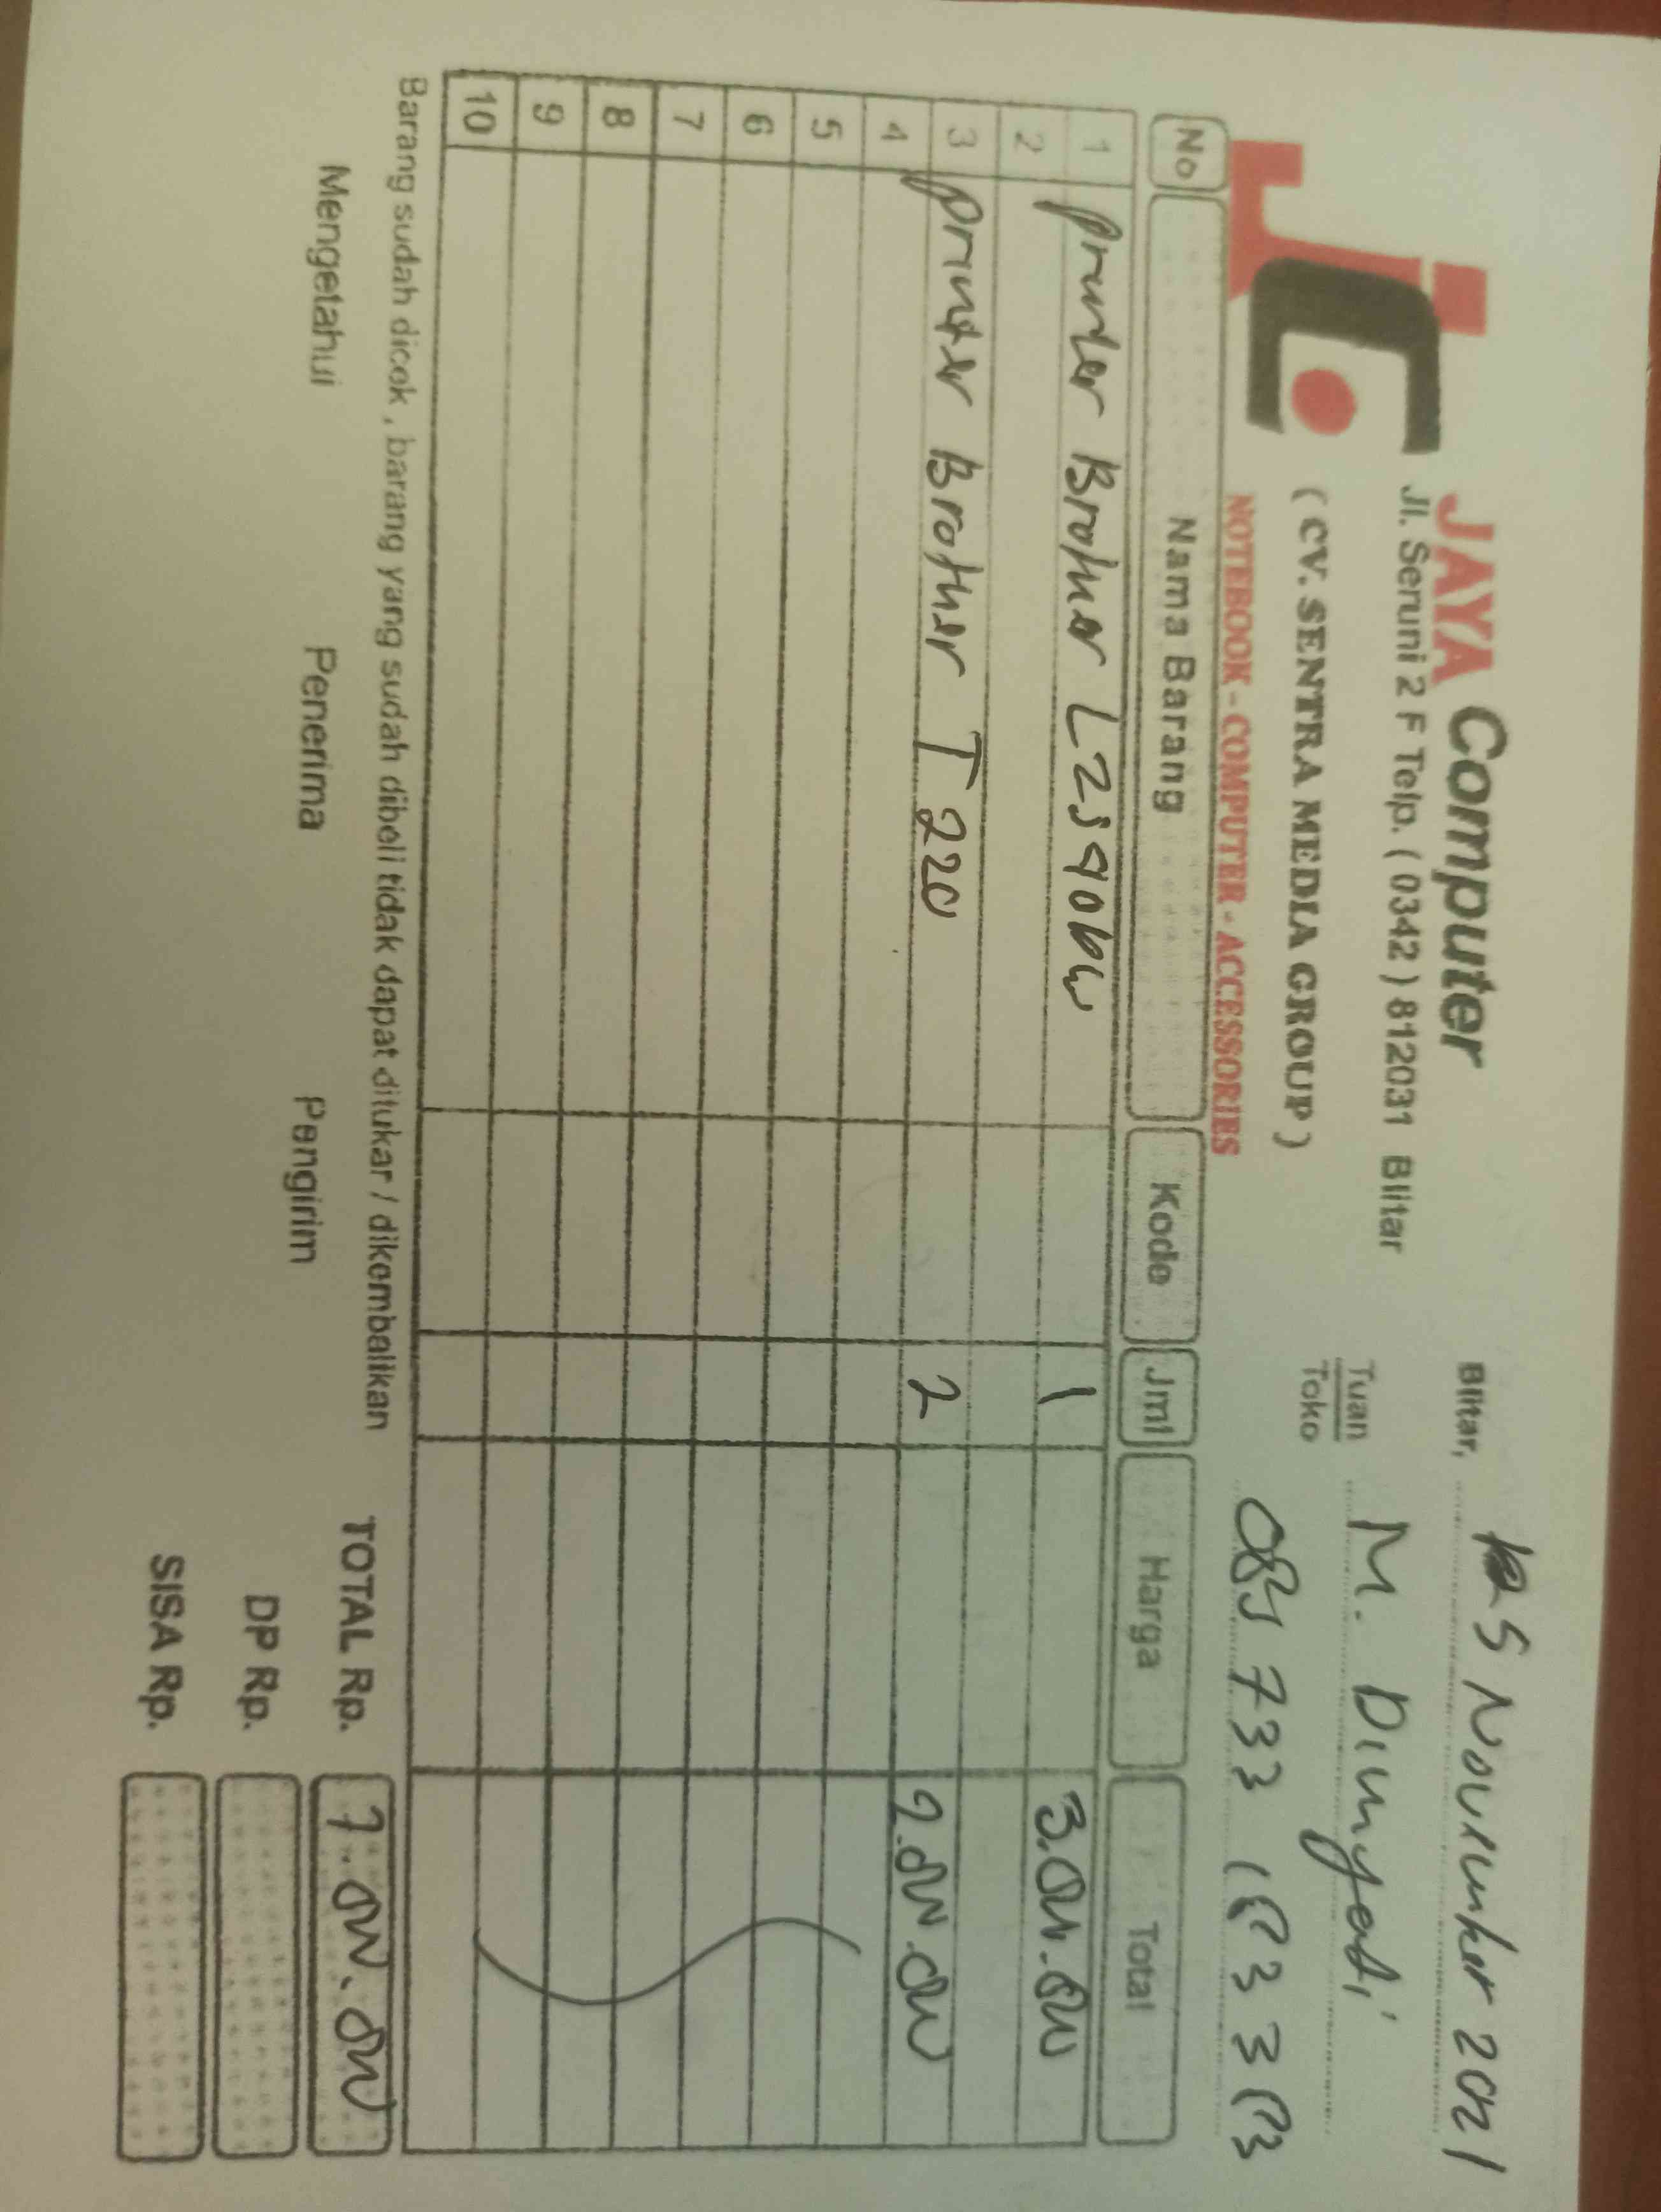 JAYA Computer
Jl. Seruni 2 F Telp. ( 0342 ) 812031 Blitar
( CV. SENTRA MEDIA GROUP )
NOTEBOOK - COMPUTER - ACCESSORIES
Blitar, 5 November 2021
Tuan M. Dimyati
Toko
No Nama Barang Kode Jml Harga Total
1 Printer Brother L2540DW 1 3.000.000
2
3 printer Brother T220 2
4
5
6
7
8
9
10
Barang sudah dicek, barang yang sudah dibeli tidak dapat ditukar / dikembalikan
Mengetahui Penerima Pengirim
TOTAL Rp. 7.000.000
DP Rp.
SISA Rp.